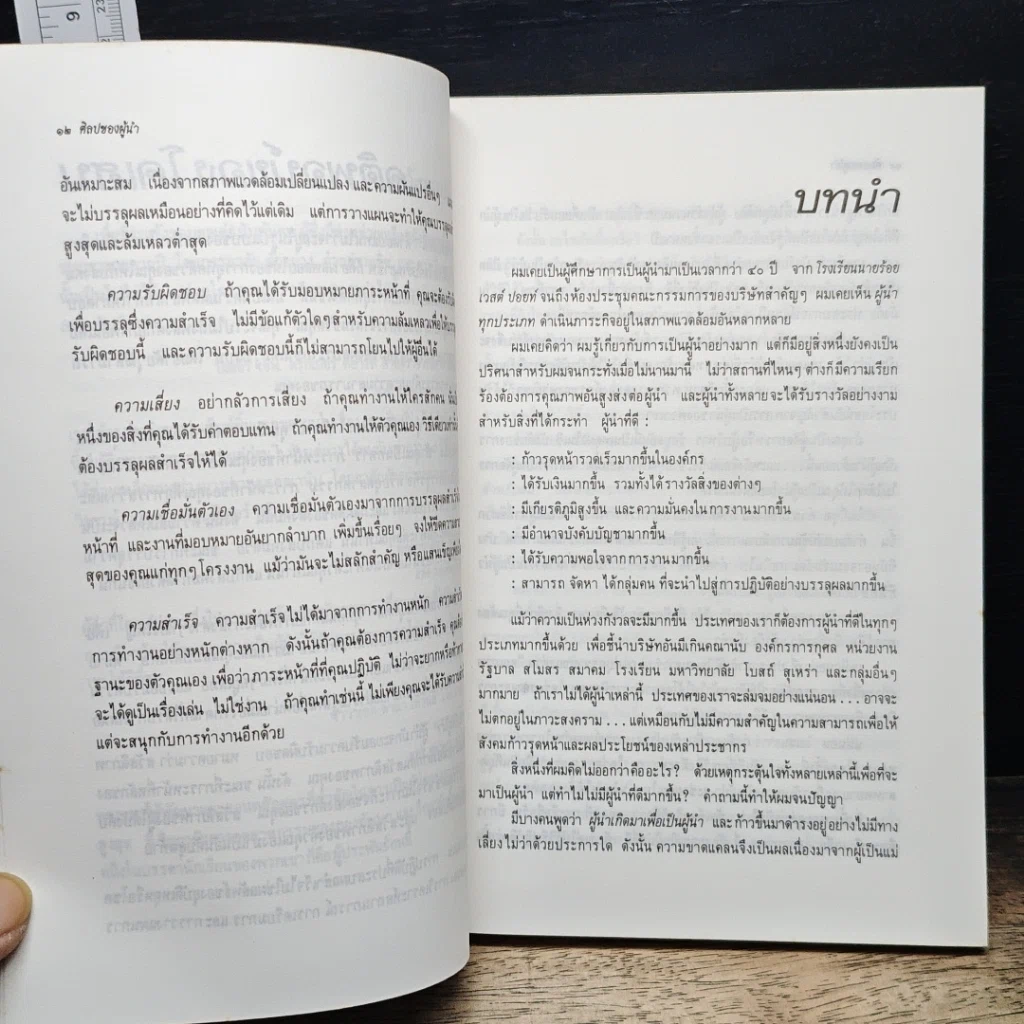 9
23
๑๒ ศิลปของผู้นำ
อันเหมาะสม เนื่องจากสภาพแวดล้อมเปลี่ยนแปลง และความผันแปรอื่นๆ
จะไม่บรรลุผลเหมือนอย่างที่คิดไว้แต่เดิม แต่การวางแผนจะทำให้คุณบรรลุ
สูงสุดและล้มเหลวต่ำสุด
ความรับผิดชอบ ถ้าคุณได้รับมอบหมายภาระหน้าที่ คุณจะต้อง
เพื่อบรรลุซึ่งความสำเร็จ ไม่มีข้อแก้ตัวใดๆสำหรับความล้มเหลวเพื่อให้
รับผิดชอบนี้ และความรับผิดชอบนี้ก็ไม่สามารถโยนไปให้ผู้อื่นได้
ความเสี่ยง อย่ากลัวการเสี่ยง ถ้าคุณทำงานให้ใครสักคน
หนึ่งของสิ่งที่คุณได้รับค่าตอบแทน ถ้าคุณทำงานให้ตัวคุณเอง วิธีเดียวเท่านั้น
ต้องบรรลุผลสำเร็จให้ได้
ความเชื่อมั่นตัวเอง ความเชื่อมั่นตัวเองมาจากการบรรลุผลสำเร็จ
หน้าที่ และงานที่มอบหมายอันยากลำบาก เพิ่มขึ้นเรื่อยๆ จงให้ขีดความ
สุดของคุณแก่ทุกๆโครงงาน แม้ว่ามันจะไม่สลักสำคัญ หรือแสนเข็ญ
ความสำเร็จ ความสำเร็จไม่ได้มาจากการทำงานหนัก
การทำงานอย่างหนักต่างหาก ดังนั้นถ้าคุณต้องการความสำเร็จ
ฐานะของตัวคุณเอง เพื่อว่าภาระหน้าที่ที่คุณปฏิบัติ ไม่ว่าจะยากหรือ
จะได้ดูเป็นเรื่องเล่น ไม่ใช่งาน ถ้าคุณทำเช่นนี้ ไม่เพียงคุณจะได้รับความ
แต่จะสนุกกับการทำงานอีกด้วย
บทนำ
ผมเคยเป็นผู้ศึกษาการเป็นผู้นำมาเป็นเวลากว่า ๔๐ ปี จาก โรงเรียนนายร้อย
เวสต์ ปอยท์ จนถึงห้องประชุมคณะกรรมการของบริษัทสำคัญๆ ผมเคยเห็น ผู้นำ
ทุกประเภท ดำเนินภาระกิจอยู่ในสภาพแวดล้อมอันหลากหลาย
ผมเคยคิดว่า ผมรู้เกี่ยวกับการเป็นผู้นำอย่างมาก แต่ก็มีอยู่สิ่งหนึ่งยังคงเป็น
ปริศนาสำหรับผมจนกระทั่งเมื่อไม่นานมานี้ ไม่ว่าสถานที่ไหนๆ ต่างก็มีความเรียก
ร้องต้องการคุณภาพอันสูงส่งต่อผู้นำ และผู้นำทั้งหลายจะได้รับรางวัลอย่างงาม
สำหรับสิ่งที่ได้กระทำ ผู้นำที่ดี :
: ก้าวรุดหน้ารวดเร็วมากขึ้นในองค์กร
: ได้รับเงินมากขึ้น รวมทั้งได้รางวัลสิ่งของต่างๆ
: มีเกียรติภูมิสูงขึ้น และความมั่นคงในการงานมากขึ้น
: มีอำนาจบังคับบัญชามากขึ้น
: ได้รับความพอใจจากการงานมากขึ้น
: สามารถ จัดหา ได้กลุ่มคน ที่จะนำไปสู่การปฏิบัติอย่างบรรลุผลมากขึ้น
แม้ว่าความเป็นห่วงกังวลจะมีมากขึ้น ประเทศของเราก็ต้องการผู้นำที่ดีในทุกๆ
ประเภทมากขึ้นด้วย เพื่อชี้นำบริษัทอันมีเกินคณานับ องค์กรการกุศล หน่วยงาน
รัฐบาล สโมสร สมาคม โรงเรียน มหาวิทยาลัย โบสถ์ สุเหร่า และกลุ่มอื่นๆ
มากมาย ถ้าเราไม่ได้ผู้นำเหล่านี้ ประเทศของเราจะล่มจมอย่างแน่นอน . . . อาจจะ
ไม่ตกอยู่ในภาวะสงคราม . . . แต่เหมือนกับไม่มีความสำคัญในความสามารถเพื่อให้
สังคมก้าวรุดหน้าและผลประโยชน์ของเหล่าประชากร
สิ่งหนึ่งที่ผมคิดไม่ออกว่าคืออะไร? ด้วยเหตุกระตุ้นใจทั้งหลายเหล่านี้เพื่อที่จะ
มาเป็นผู้นำ แต่ทำไมไม่มีผู้นำที่ดีมากขึ้น? คำถามนี้ทำให้ผมจนปัญญา
มีบางคนพูดว่า ผู้นำเกิดมาเพื่อเป็นผู้นำ และก้าวขึ้นมาดำรงอยู่อย่างไม่มีทาง
เลี่ยงไม่ว่าด้วยประการใด ดังนั้น ความขาดแคลนจึงเป็นผลเนื่องมาจากผู้เป็นแม่